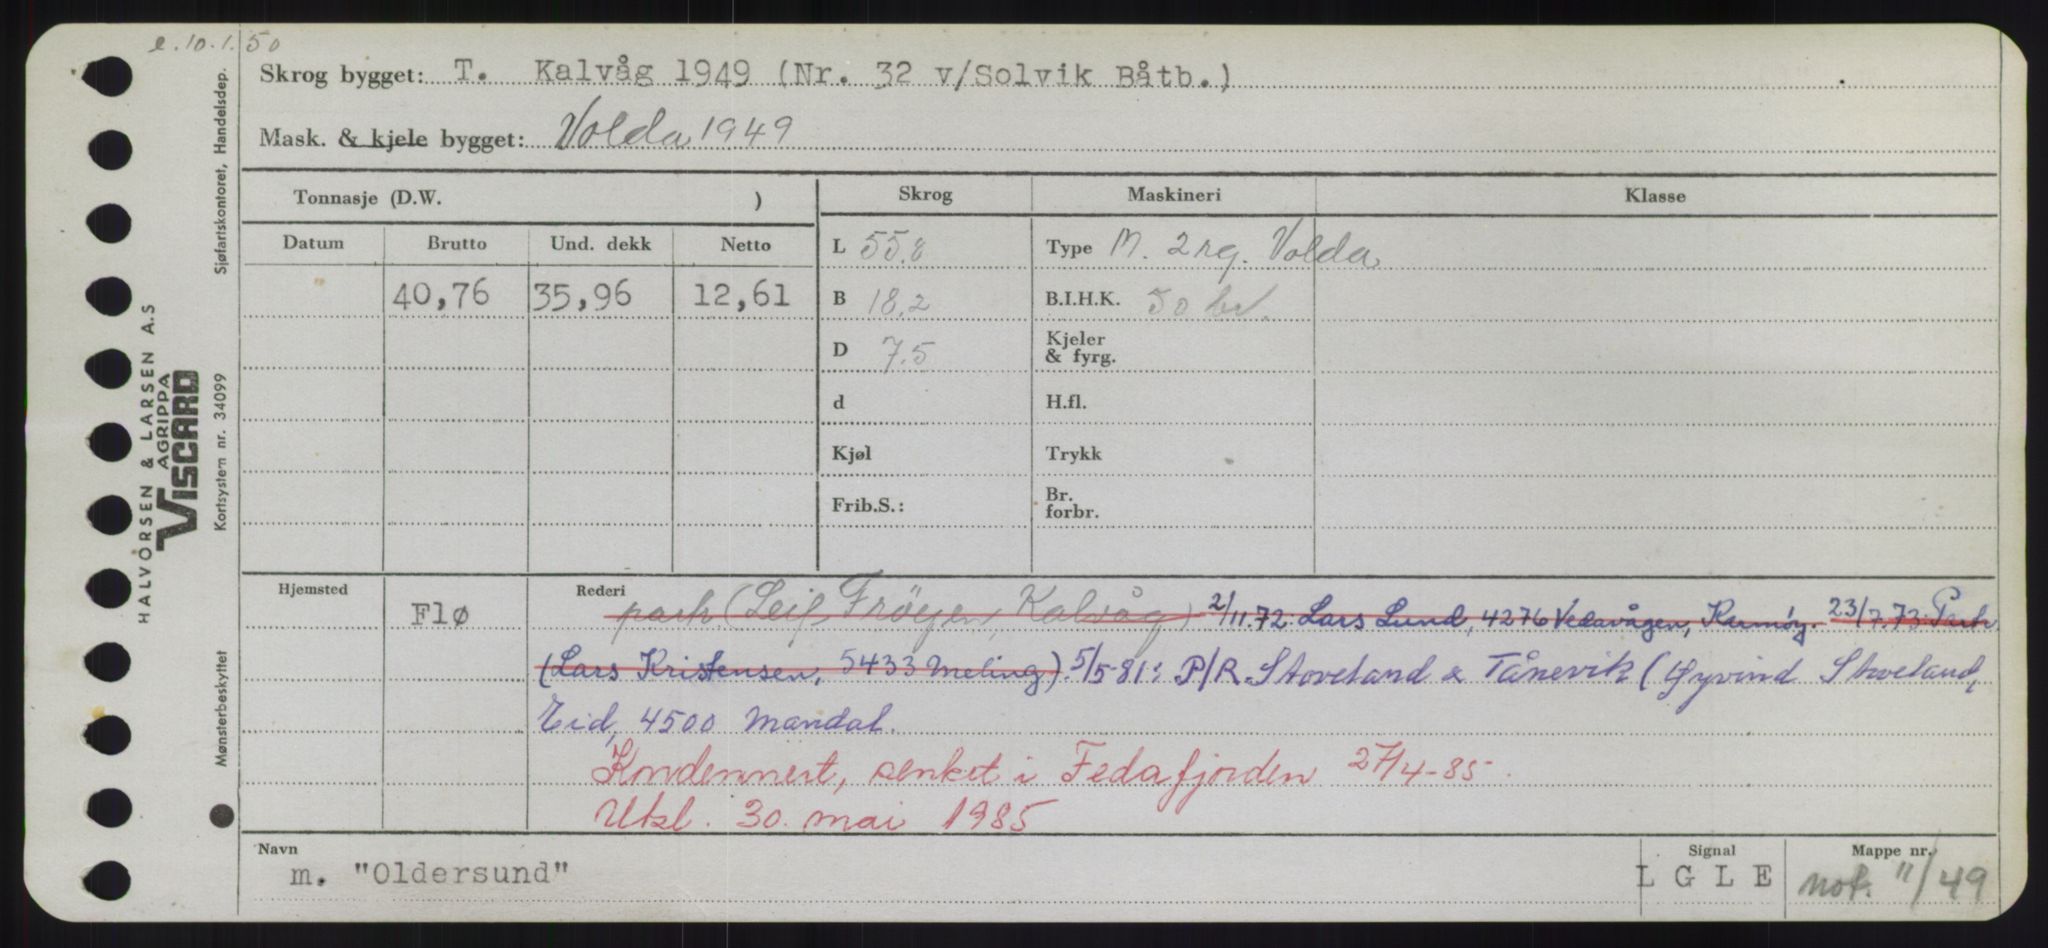 e. 10.1.50
Skrog bygget: T. Kalvåg 1949 (Nr. 32 v/Solvik Båtb.)
Mask. & kjele bygget: Volda 1949
Tonnasje (D.W. )
Skrog
Maskineri
Klasse
Datum
Brutto
Und. dekk
Netto
L 55.8
Type M. 2 rg. Volda
40,76
35,96
12,61
B 18,2
B.I.H.K. 50 hk.
D 7.5
Kjeler
& fyrg.
d
H.fl.
Kjøl
Trykk
Frib.S.:
Br.
forbr.
Hjemsted
Flø
Rederi
partr (Leif Frøyen, Kalvåg) 2/11.72: Lars Lund, 4276 Vedavågen, Karmøy. 23/7.73: Partr.
(Lars Kristensen, 5433 Meling). 5/5-81: P/R. Stoveland & Tånevik (Øyvind Stoveland,
Eid, 4500 Mandal.
Kondemnert, senket i Fedafjorden 27/4-85.
Utkl. 30. mai 1985
Navn
m. "Oldersund"
Signal
L G L E
Mappe nr.
not. 11/49
HALVORSEN & LARSEN A.S
AGRIPPA
VISCARD
Sjøfartskontoret, Handelsdep.
Kortsystem nr. 34099
Mønsterbeskyttet